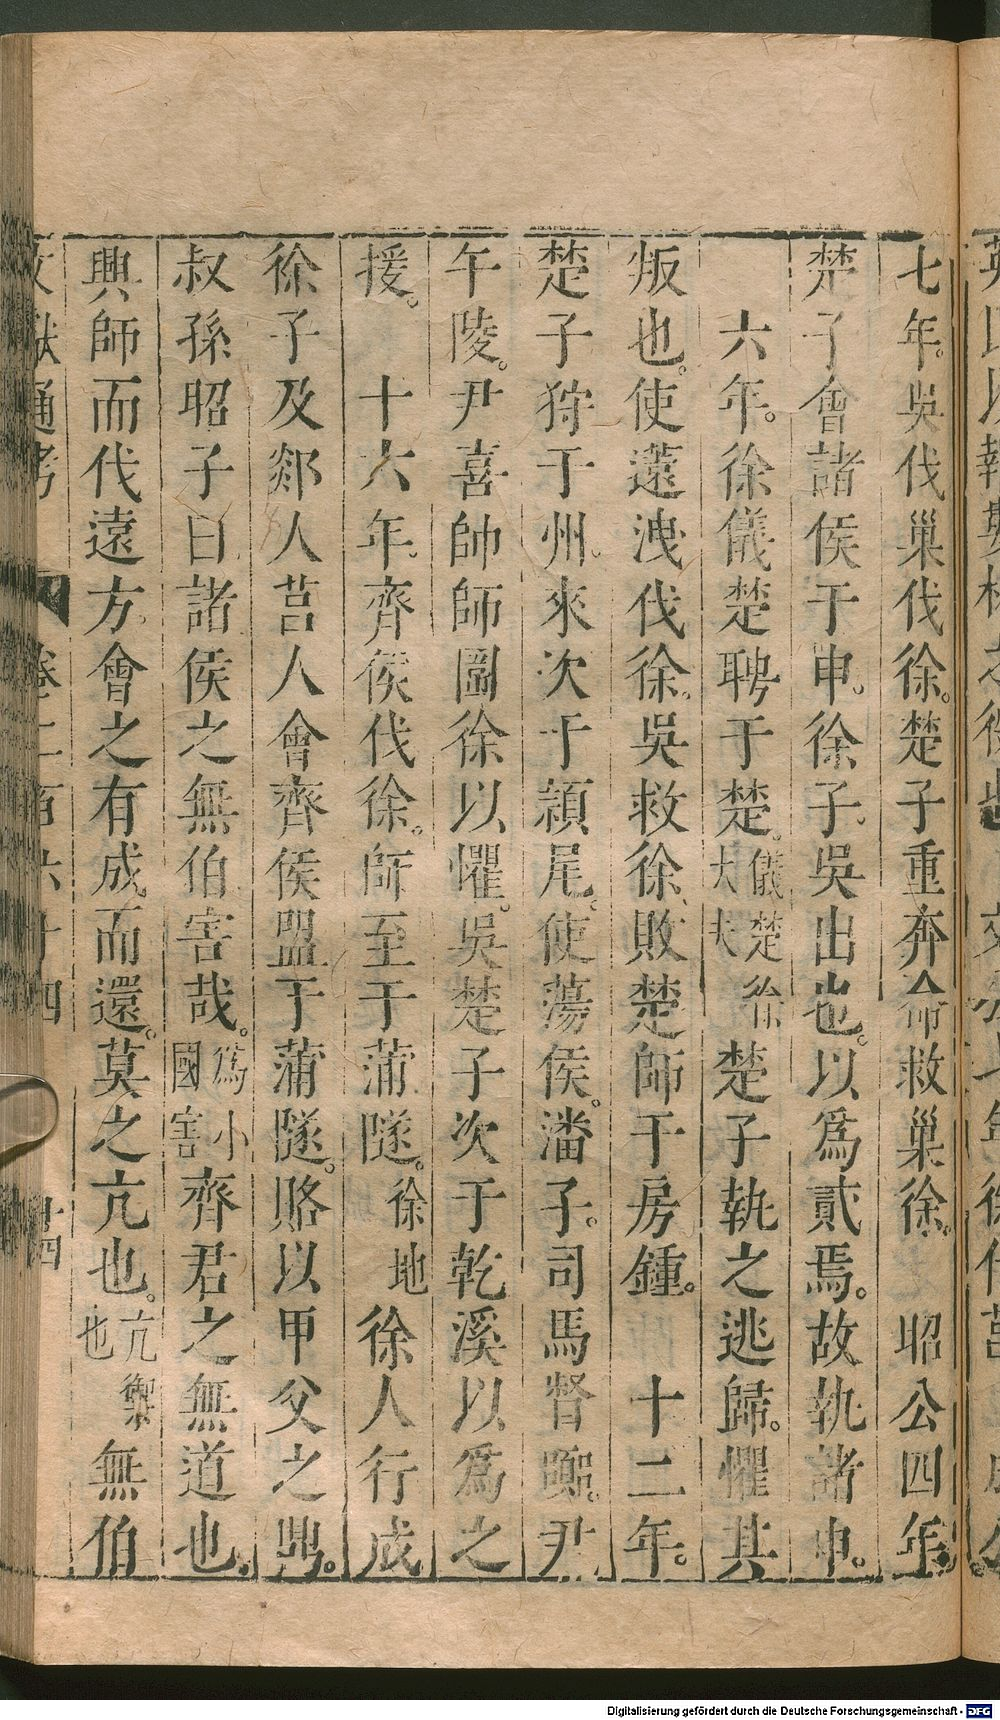 七年。吳伐巢伐徐。楚子重奔命救巢徐。　昭公四年。
楚子會諸侯于申。徐子。吳出也。以爲貳焉。故執諸申。
六年。徐儀楚聘于楚。儀楚徐大夫楚子執之逃歸。懼其
叛也。使薳洩伐徐。吳救徐。敗楚師于房鍾。　十二年。
楚子狩于州來次于潁尾。使蕩侯。潘子。司馬督。嚻尹
午陵。尹喜帥師圍徐以懼。吳楚子次于乾溪以爲之
援。　十六年。齊侯伐徐。師至于蒲隧。徐地徐人行成
徐子及郯人莒人會齊侯盟于蒲隧。賂以甲父之鼎。
叔孫昭子曰諸侯之無伯害哉。爲小國害齊君之無道也。
興師而伐遠方。會之有成而還。莫之亢也。亢禦也無伯
Digitalisierung gefördert durch die Deutsche Forschungsgemeinschaft - DFG